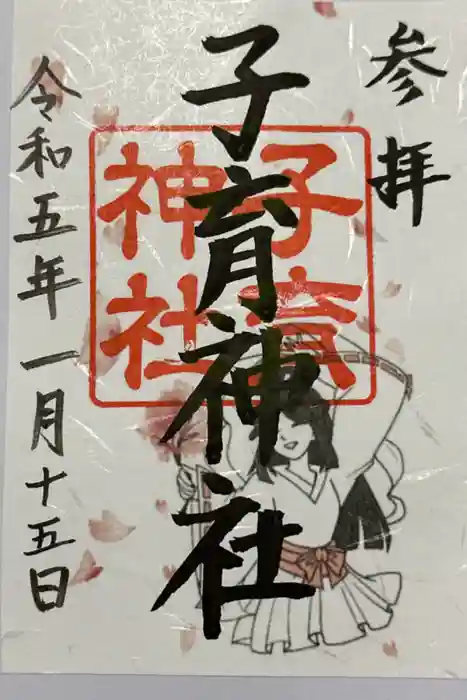 参拝
子育神社
子育神社
令和五年一月十五日